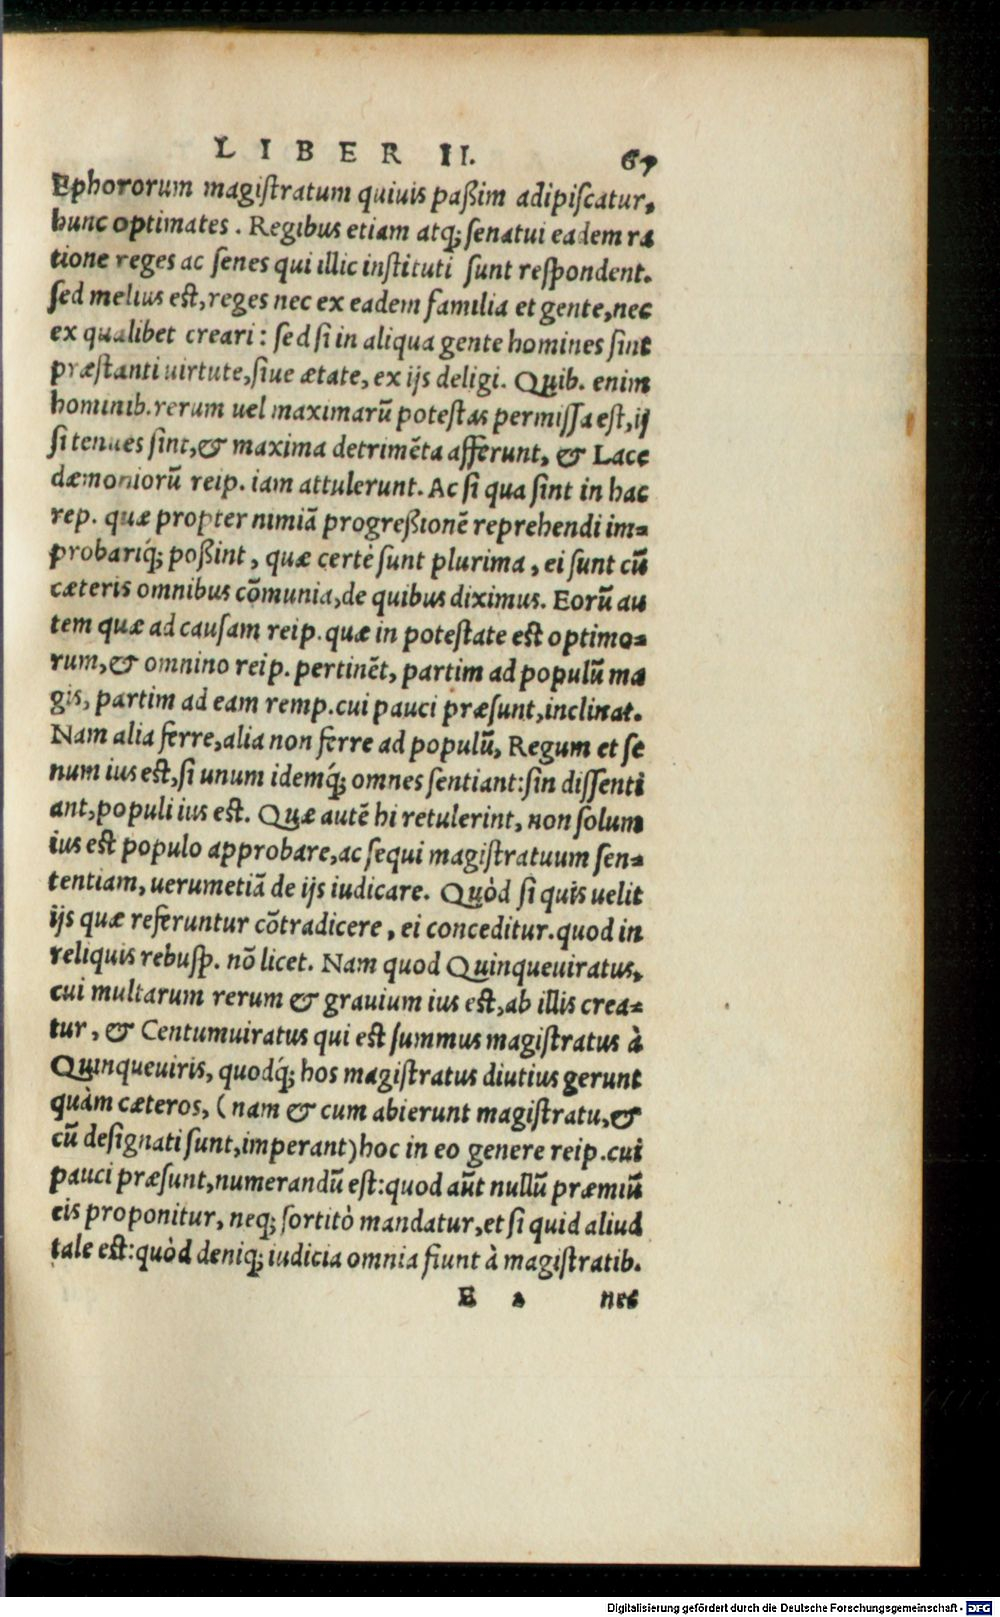 LIBER II. 67
Ephororum magiſtratum quiuis paßim adipiſcatur,
hunc optimates. Regibus etiam atq; ſenatui eadem ra
tione reges ac ſenes qui illic inſtituti ſunt reſpondent.
ſed melius eſt, reges nec ex eadem familia et gente, nec
ex qualibet creari: ſed ſi in aliqua gente homines ſint
præſtanti uirtute, ſiue ætate, ex ijs deligi. Quib. enim
hominib. rerum uel maximarū poteſtas permiſſa eſt, ij
ſi tenues ſint, & maxima detrimēta afferunt, & Lace
dæmoniorū reip. iam attulerunt. Ac ſi qua ſint in hac
rep. quæ propter nimiā progreßionē reprehendi im=
probariq́; poßint, quæ certè ſunt plurima, ei ſunt cū
cæteris omnibus cōmunia, de quibus diximus. Eorū au
tem quæ ad cauſam reip. quæ in poteſtate eſt optimo=
rum, & omnino reip. pertinēt, partim ad populū ma
gis, partim ad eam remp. cui pauci præſunt, inclinat.
Nam alia ferre, alia non ferre ad populū, Regum et ſe
num ius eſt, ſi unum idemq́; omnes ſentiant: ſin diſſenti
ant, populi ius eſt. Quæ autē hi retulerint, non ſolum
ius eſt populo approbare, ac ſequi magiſtratuum ſen=
tentiam, uerumetiā de ijs iudicare. Quòd ſi quis uelit
ijs quæ referuntur cōtradicere, ei conceditur. quod in
reliquis rebuſp. nō licet. Nam quod Quinqueuiratus,
cui multarum rerum & grauium ius eſt, ab illis crea=
tur, & Centumuiratus qui eſt ſummus magiſtratus à
Quinqueuiris, quodq́; hos magiſtratus diutius gerunt
quàm cæteros, (nam & cum abierunt magiſtratu, &
cū deſignati ſunt, imperant) hoc in eo genere reip. cui
pauci præſunt, numerandū eſt: quod aūt nullū præmiū
eis proponitur, neq; ſortitò mandatur, et ſi quid aliud
tale eſt: quòd deniq; iudicia omnia fiunt à magiſtratib.
E a nec
Digitalisierung gefördert durch die Deutsche Forschungsgemeinschaft - DFG